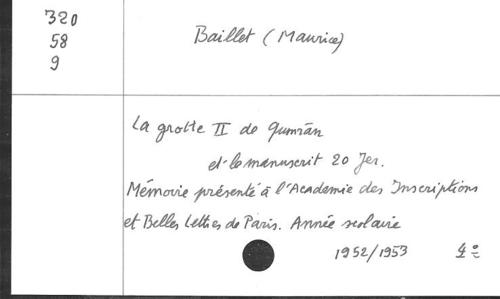 320
58
9
Baillet (Maurice)
La grotte II de Qumrān
et le manuscrit 20 Jer.
Mémoire présenté à l'Academie des Inscriptions
et Belles Lettres de Paris. Année scolaire
1952/1953 4º